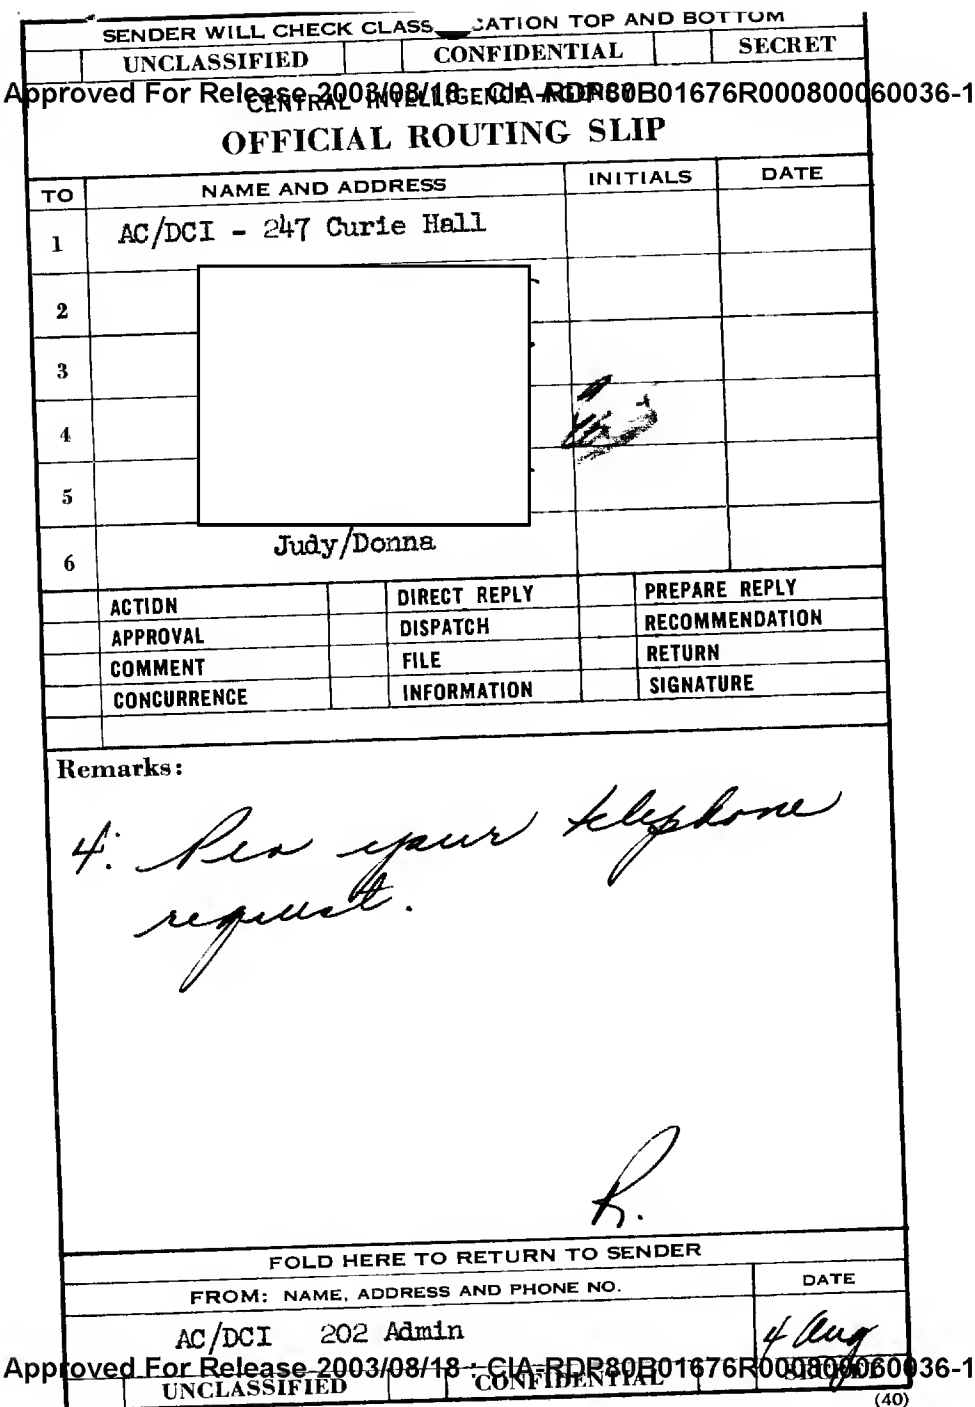 SENDER WILL CHECK CLASS CATION TOP AND BOTTOM
UNCLASSIFIED CONFIDENTIAL SECRET
Approved For Release 2003/08/18 : CIA-RDP80B01676R000800060036-1
CENTRAL INTELLIGENCE AGENCY
OFFICIAL ROUTING SLIP
TO NAME AND ADDRESS INITIALS DATE
1 AC/DCI - 247 Curie Hall
2
3
4
5
Judy/Donna
6
ACTION DIRECT REPLY PREPARE REPLY
APPROVAL DISPATCH RECOMMENDATION
COMMENT FILE RETURN
CONCURRENCE INFORMATION SIGNATURE
Remarks:
4: Per your telephone
request.
R.
FOLD HERE TO RETURN TO SENDER
FROM: NAME, ADDRESS AND PHONE NO. DATE
AC/DCI 202 Admin 4 Aug
Approved For Release 2003/08/18 : CIA-RDP80B01676R000800060036-1
UNCLASSIFIED CONFIDENTIAL SECRET
(40)